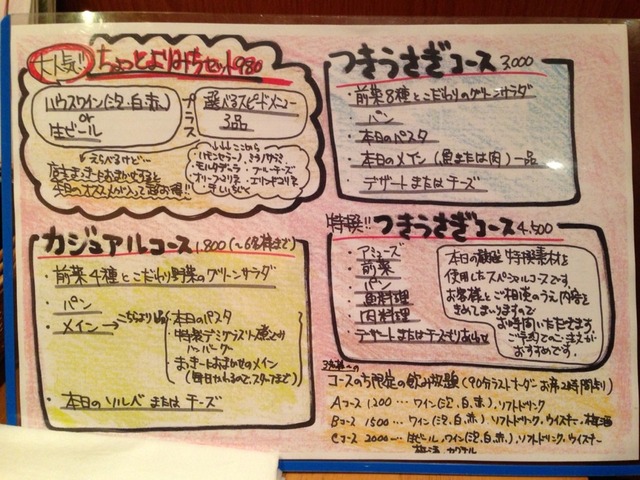 大人気!! ちょっとよりみちセット980
ハウスワイン(泡、白、赤)
or
生ビール
プラス
選べるスピードメニュー
3品
えらべるけど…
店主まっきーにおまかせすると
今日のオススメが入って超お得!!
↓↓↓ここから
・モルタデッラ
つきうさぎコース 3,000
・前菜8種とこだわりのグリーンサラダ
・パン
・本日のパスタ
・本日のメイン(魚または肉)一品
・デザートまたはチーズ
カジュアルコース 1,800(~6名様まで)
・前菜4種とこだわり野菜のグリーンサラダ
・パン
・メイン→こちらより1品
・本日のパスタ
・特製デミグラスソース煮こみ
ハンバーグ
・まっきーおまかせのメイン
(毎日かわるので、スタッフまで)
・本日のソルベ または チーズ
特撰!! つきうさぎコース 4,500
・アミューズ
・前菜
・パン
・魚料理
・肉料理
・デザートまたはチーズもりあわせ
本日の厳選特撰素材を
使用したスペシャルコースです。
お客様とご相談のうえ内容を
きめてまいりますので
お時間いただきます。
ご予約でのご注文が
おすすめです。
コースのち限定の飲み放題(90分ラストオーダー お席2時間まで)
Aコース 1200…ワイン(泡、白、赤)、ソフトドリンク
Bコース 1500…ワイン(泡、白、赤)、ソフトドリンク、ウイスキー、梅酒
Cコース 2000…生ビール、ワイン(泡、白、赤)、ソフトドリンク、ウイスキー
梅酒 カクテル